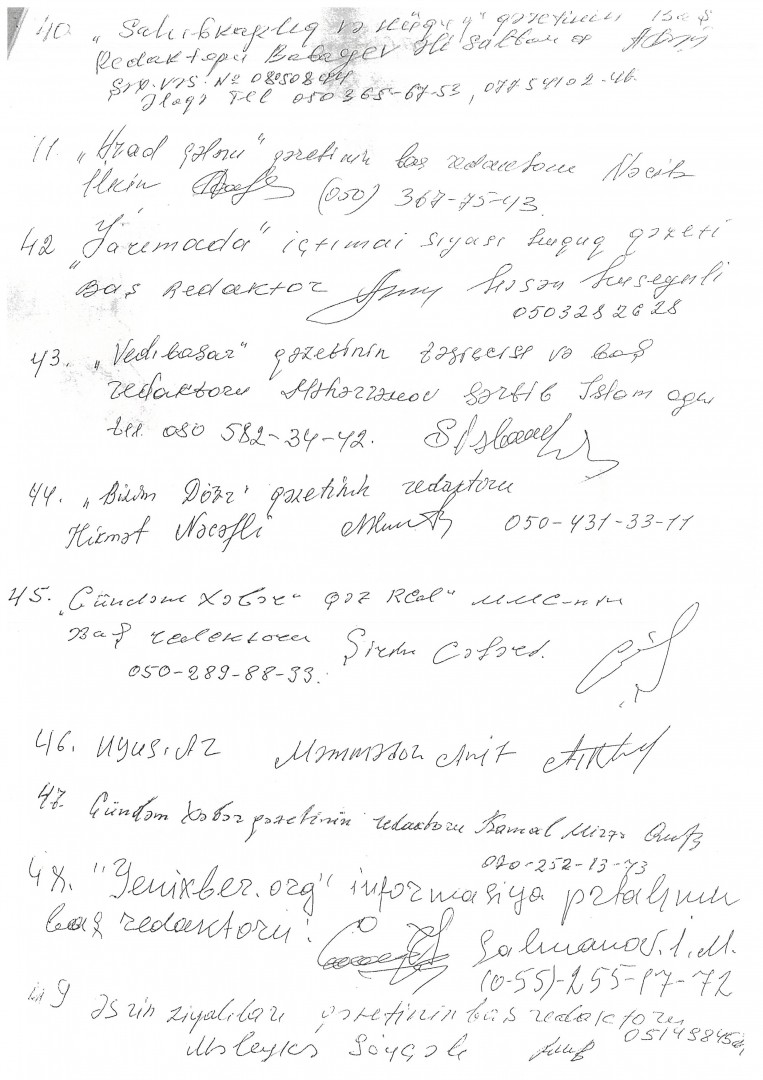 40. "Sahibkarlıq və hüquq" qəzetinin Baş
Redaktoru Babayev Əli Soltan o
Şəx. VƏS. № 08508
Əlaqə Tel 050 365-67-53, 077 541 02-46
41. "Azad qələm" qəzetinin baş redaktoru Nəcib
İlkin (050) 367-75-43
42 "Yarımada" içtimai siyasi huquq qəzeti
Baş Redaktor Həsən Huseynli
050 328 26 28
43. "Vedibasar" qəzetinin təsisçisi və baş
redaktoru Məhərrəmov Qərib İslam oğlu
tel. 050 582-34-42.
44. "Bizim Dövr" qəzetinin redaktoru
Hikmət Nəcəfli 050-431-33-11
45. "Gündəm Xəbər" qəz Red" MMC-nin
Baş redaktoru Şirin Cəfərli.
050-289-88-33.
46. uyus.AZ Məmmədov
47. Gündəm Xəbər qəzetinin redaktoru Kamal Mirzə
070-252-13-73
48. "Yenixber.org" informasiya prtalının
baş redaktoru: Salmanov. İ. M.
(0-55)-255-17-72
49 Əsrin ziyalıları qəzetinin baş redaktoru
Mələykə 05149845